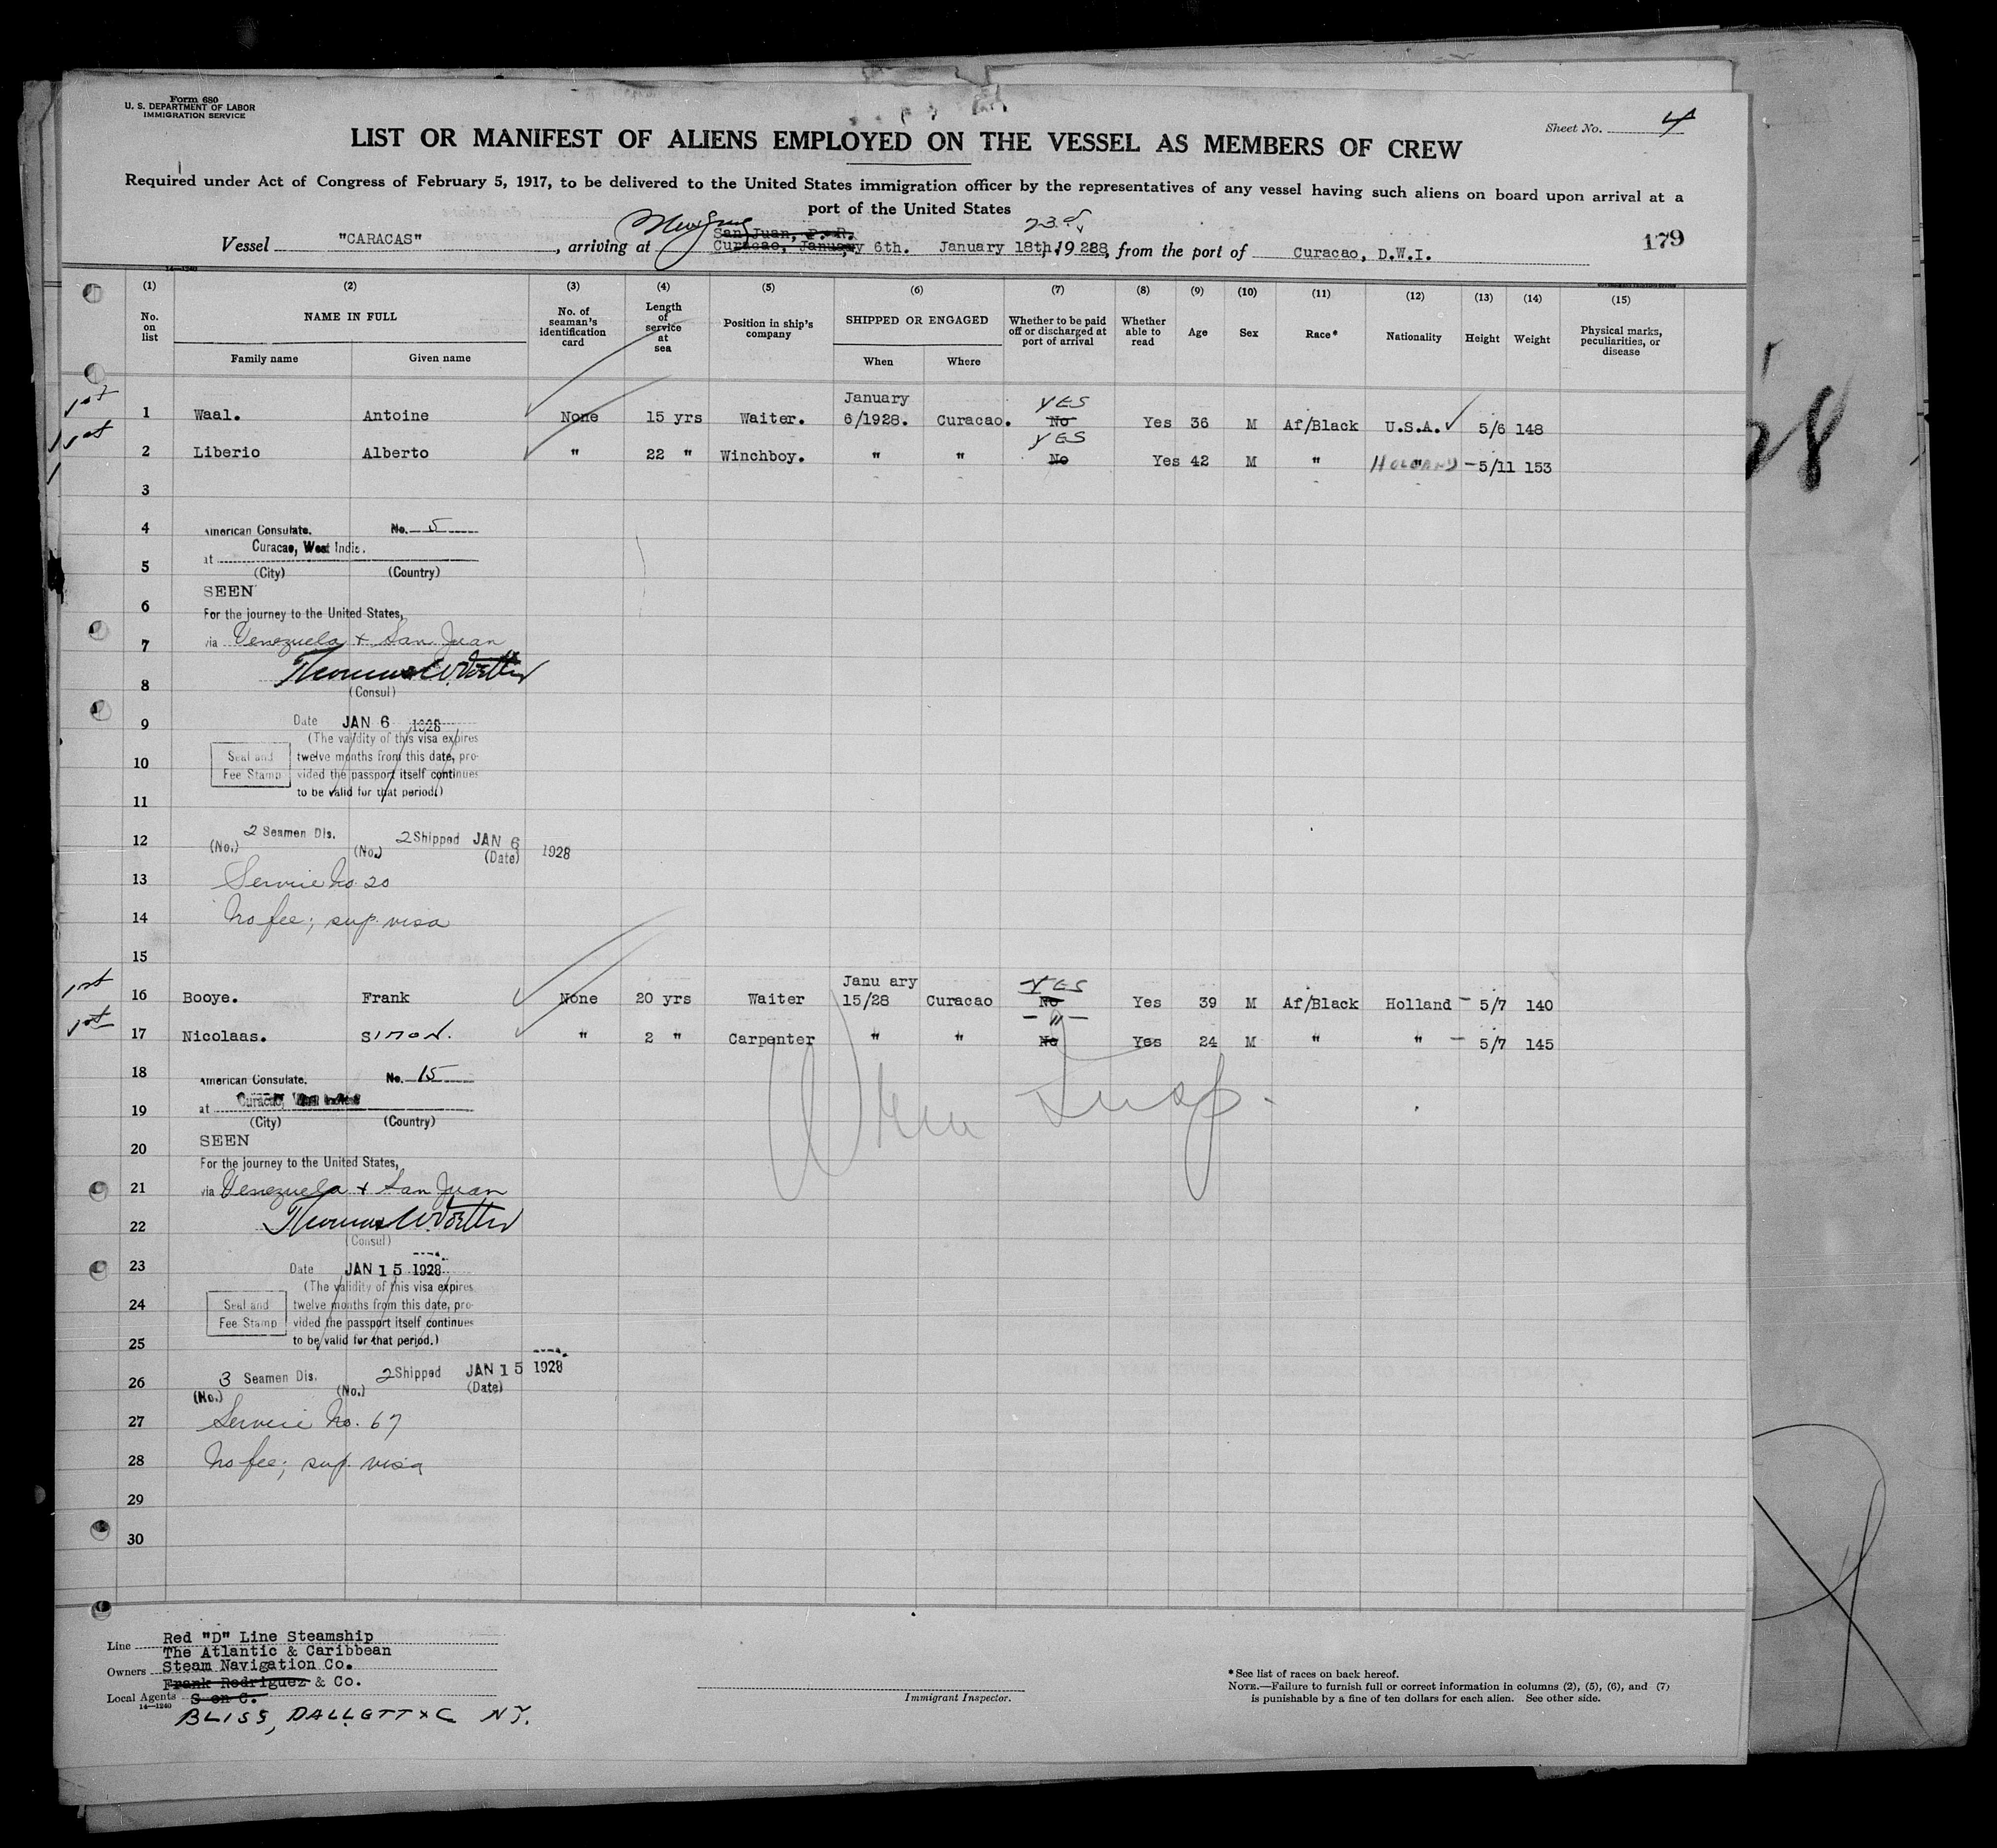 Form 680
U. S. DEPARTMENT OF LABOR
IMMIGRATION SERVICE
Sheet No. 4
LIST OR MANIFEST OF ALIENS EMPLOYED ON THE VESSEL AS MEMBERS OF CREW
Required under Act of Congress of February 5, 1917, to be delivered to the United States immigration officer by the representatives of any vessel having such aliens on board upon arrival at a
port of the United States
23rd
San Juan, P. R.
Vessel "CARACAS", arriving at Curacao, January 6th. January 18th, 1928, from the port of Curacao, D.W.I.
179
14—1240
(1) (2) (3) (4) (5) (6) (7) (8) (9) (10) (11) (12) (13) (14) (15)
No. on list
NAME IN FULL
Family name Given name
No. of seaman's identification card
Length of service at sea
Position in ship's company
SHIPPED OR ENGAGED
When Where
Whether to be paid off or discharged at port of arrival
Whether able to read
Age
Sex
Race*
Nationality
Height
Weight
Physical marks, peculiarities, or disease
1st 1 Waal. Antoine None 15 yrs Waiter. January 6/1928. Curacao. No YES Yes 36 M Af/Black U.S.A. 5/6 148
1st 2 Liberio Alberto " 22 " Winchboy. " " No YES Yes 42 M " " HOLLAND 5/11 153
3
4 American Consulate. No. 5
Curacao, West Indie.
5 at
(City) (Country)
SEEN
6 For the journey to the United States,
7 via Venezuela + San Juan
8
(Consul)
9 Date JAN 6 1928
(The validity of this visa expires
10 Seal and twelve months from this date, pro-
Fee Stamp vided the passport itself continues
11 to be valid for that period.)
12 2 Seamen Dis. 2 Shipped JAN 6 1928
(No.) (No.) (Date)
13 Service No. 20
14 No fee; sup. visa
15
1st 16 Booye. Frank None 20 yrs Waiter January 15/28 Curacao No YES Yes 39 M Af/Black Holland 5/7 140
1st 17 Nicolaas. SIMON. " 2 " Carpenter " " No " Yes 24 M " " 5/7 145
18 American Consulate. No. 15
19 at Curacao,
(City) (Country)
SEEN
20 For the journey to the United States,
21 via Venezuela + San Juan
22
(Consul)
23 Date JAN 15 1928
(The validity of this visa expires
24 Seal and twelve months from this date, pro-
Fee Stamp vided the passport itself continues
25 to be valid for that period.)
26 3 Seamen Dis. 2 Shipped JAN 15 1928
(No.) (No.) (Date)
27 Service No. 67
28 No fee; sup. visa
29
30
Line Red "D" Line Steamship
The Atlantic & Caribbean
Owners Steam Navigation Co.
Frank Rodriguez & Co.
Local Agents S on C.
14—1240
BLISS, DALLETT & C NY.
Immigrant Inspector.
*See list of races on back hereof.
NOTE.—Failure to furnish full or correct information in columns (2), (5), (6), and (7)
is punishable by a fine of ten dollars for each alien. See other side.
28